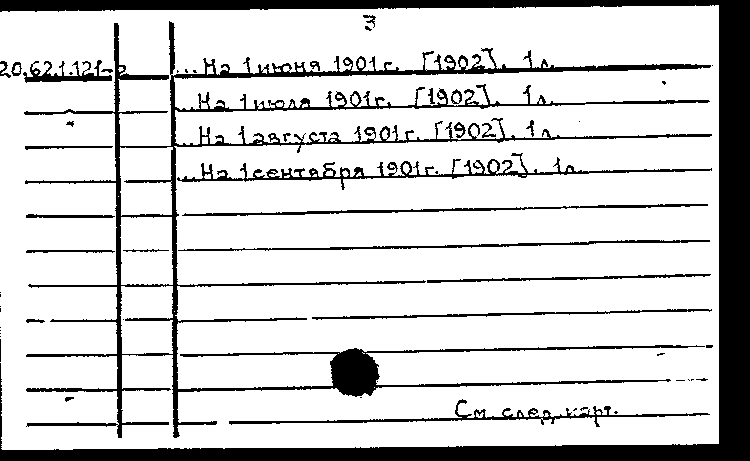 3
20.62.1.121-2 ...На 1 июня 1901г. [1902]. 1л.
...На 1 июля 1901г. [1902]. 1л.
...На 1 августа 1901г. [1902]. 1л.
...На 1 сентября 1901г. [1902]. 1л.
См. след. карт.